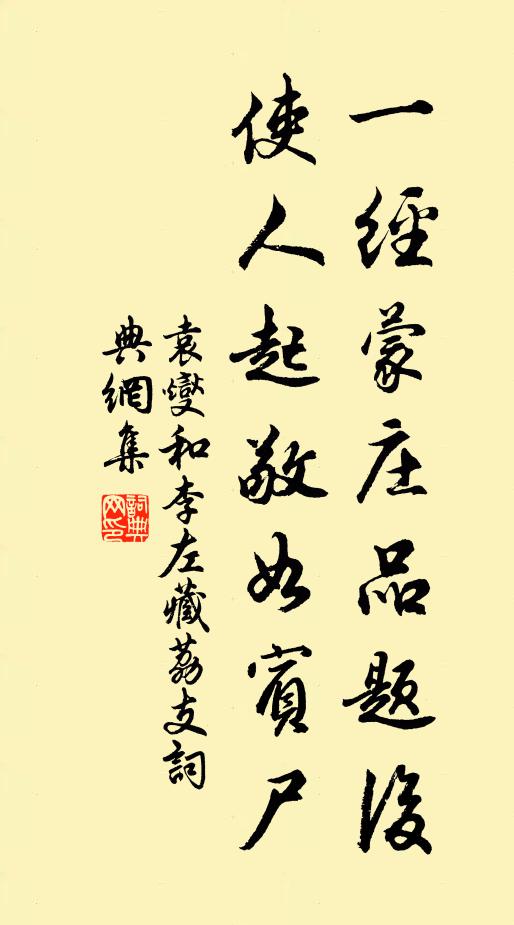 一經蒙庄品題後
使人起敬如賓尸
袁燮和李左藏荔支詞
典網集
詞典網印